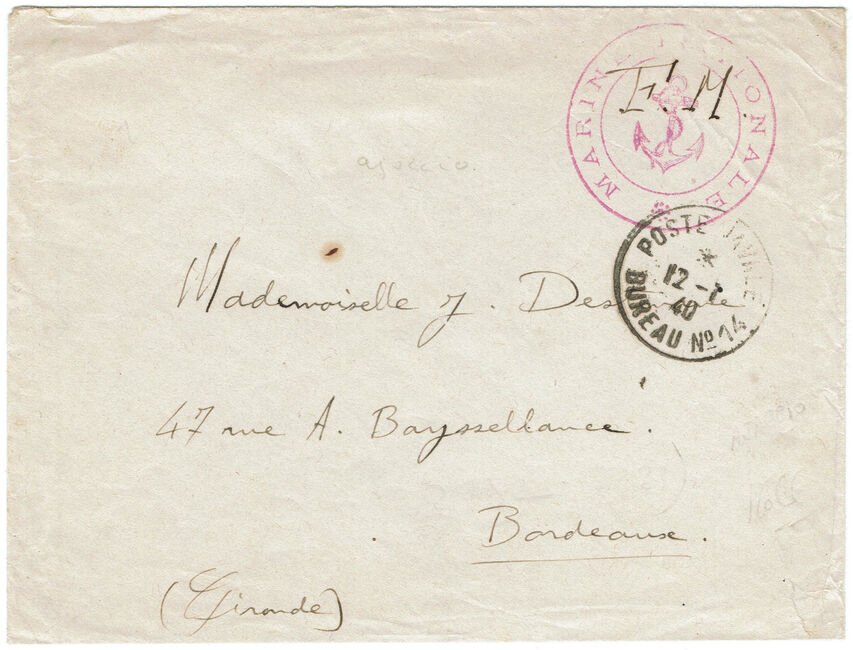 MARINE NATIONALE
F.M.
ajaccio.
POSTE NAVALE
12 - 40
BUREAU No 14
Mademoiselle J.
47 rue A. Baysselance.
Bordeaux.
(Gironde)